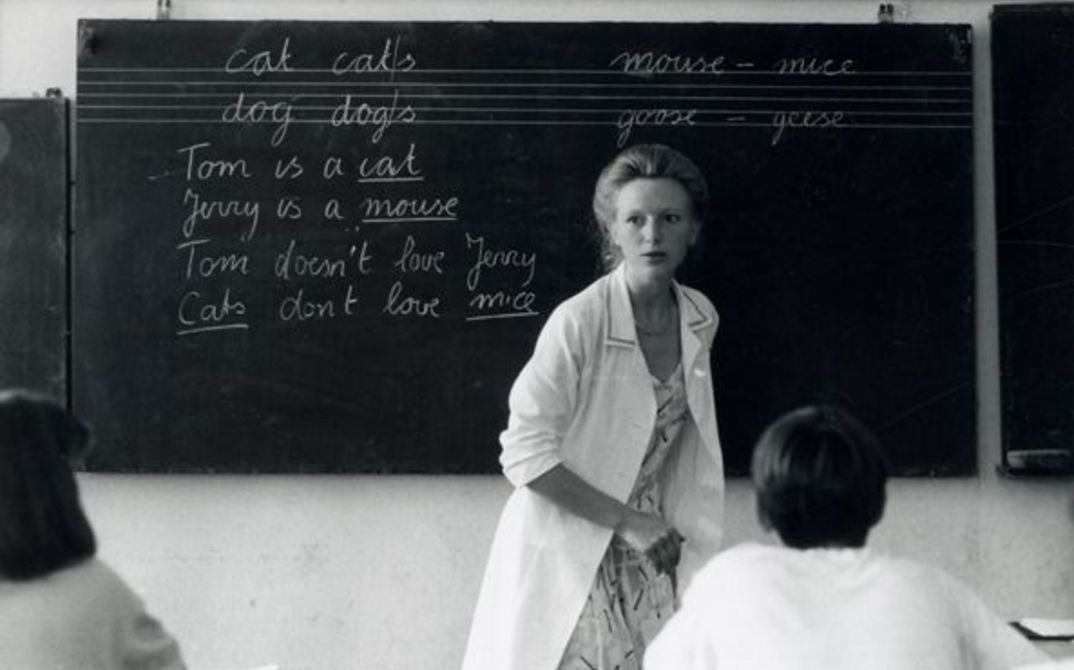 cat cat/s mouse - mice
dog dog/s goose - geese
Tom is a cat
Jerry is a mouse
Tom doesn't love Jerry
Cats don't love mice